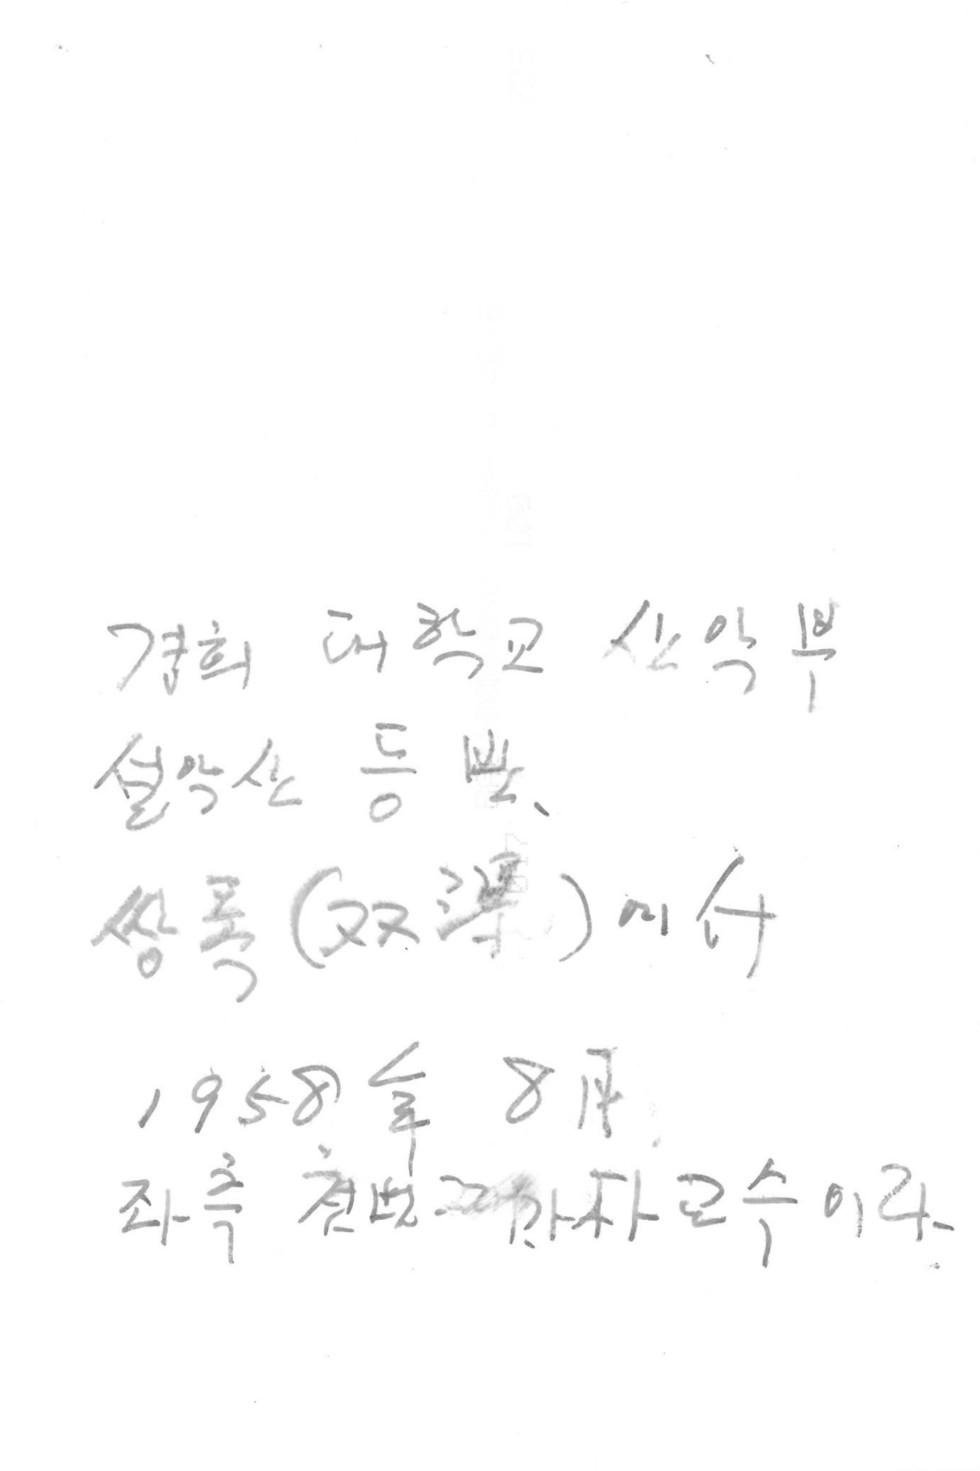 경희 대학교 산악부
설악산 등반、
쌍폭(双瀑)에서
1958年 8月.
좌측 첫번 이라.